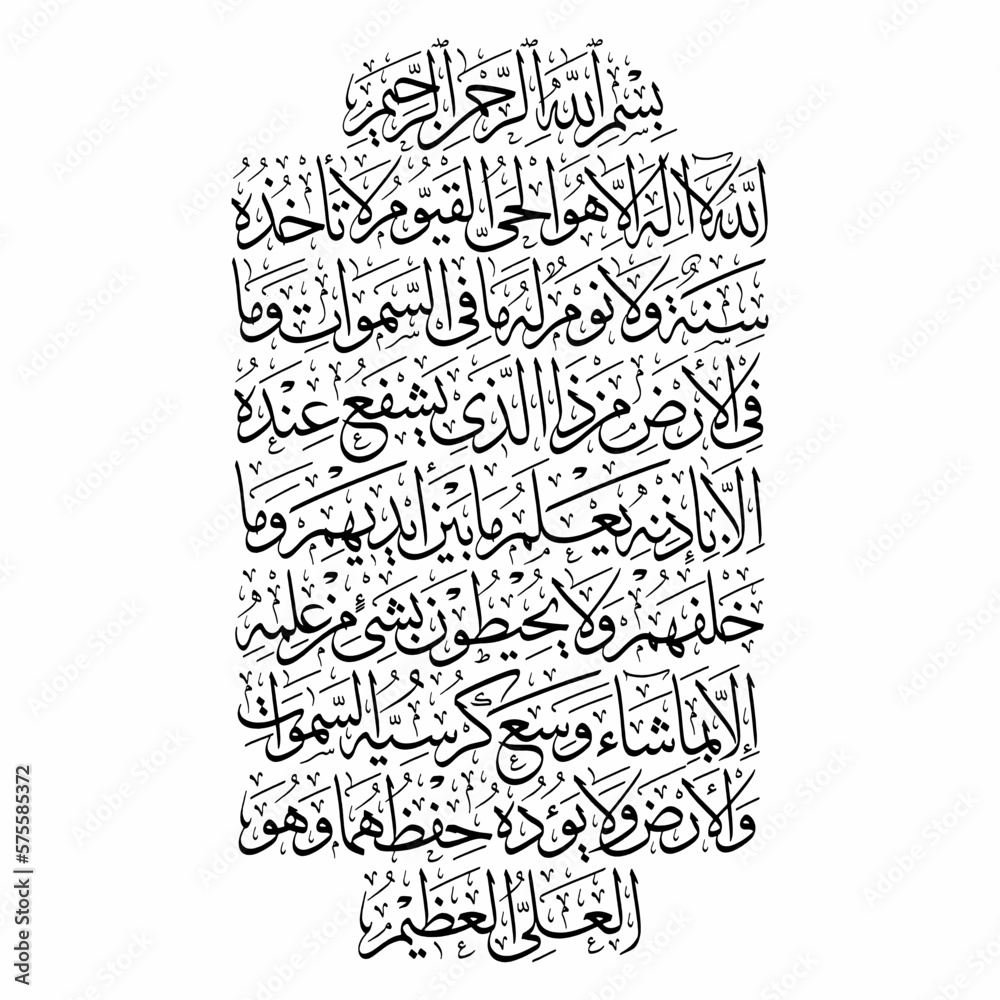 بِسْمِ اللَّهِ الرَّحْمَنِ الرَّحِيمِ
اللَّهُ لَا إِلَهَ إِلَّا هُوَ الْحَيُّ الْقَيُّومُ لَا تَأْخُذُهُ
سِنَةٌ وَلَا نَوْمٌ لَهُ مَا فِي السَّمَوَاتِ وَمَا
فِي الْأَرْضِ مَنْ ذَا الَّذِي يَشْفَعُ عِنْدَهُ
إِلَّا بِإِذْنِهِ يَعْلَمُ مَا بَيْنَ أَيْدِيهِمْ وَمَا
خَلْفَهُمْ وَلَا يُحِيطُونَ بِشَيْءٍ مِنْ عِلْمِهِ
إِلَّا بِمَا شَاءَ وَسِعَ كُرْسِيُّهُ السَّمَوَاتِ
وَالْأَرْضَ وَلَا يَؤُدُهُ حِفْظُهُمَا وَهُوَ
الْعَلِيُّ الْعَظِيمُ
Adobe Stock | #575585372